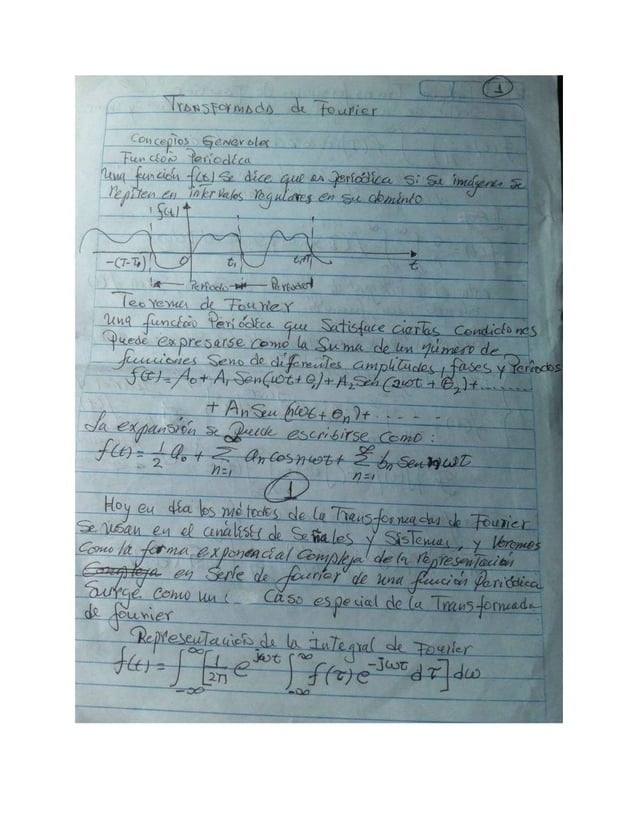 1
Transformada de Fourier
Conceptos Generales
Función Periodica
Una función f(x) se dice que es periódica si su imágenes se
repiten en intervalos regulares en su dominio
f(t)
-(T-T₀) 0 t₁ t₁+T t
Periodo Periodo
Teorema de Fourier
Una función Periódica que Satisface ciertas condiciones
Puede expresarse como la Suma de un número de
funciones Seno de diferentes amplitudes, fases y Periodos
f(t) = A₀ + A₁ Sen(ωt + θ₁) + A₂ Sen(2ωt + θ₂) + .......
+ Aₙ Sen (nωt + θₙ) + - - - - - -
La expansión se Puede escribirse como :
f(t) = 1/2 a₀ + ∞ Σ n=1 aₙ cos nωt + ∞ Σ n=1 bₙ Sen nωt
1
Hoy en día los métodos de la Transformadas de Fourier
Se usan en el análisis de Señales y Sistemas, y Veremos
como la forma exponencial compleja de la representación
Compleja en Serie de fourier de una función Periódica
Surge como un Caso especial de la Transformada
de fourier
Representación de la Integral de Fourier
f(t) = ∫_{-∞}^{∞} [1/2π e^{jωt} ∫_{-∞}^{∞} f(τ) e^{-jωτ} dτ] dω